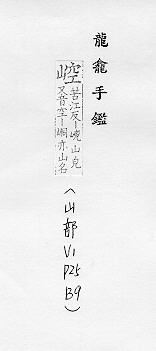 龍龕手鑑
崆
苦江反-崆山皃
又音空-峒亦山名
(山部V1
P25
B9)